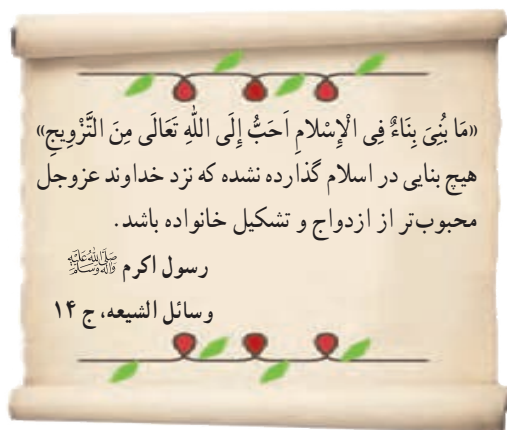 «مَا بُنِیَ بِنَاءٌ فِی الْإِسْلامِ اَحَبُّ إِلَی اللّٰهِ تَعَالَی مِنَ التَّزْوِیجِ»
هیچ بنایی در اسلام گذارده نشده که نزد خداوند عزوجل
محبوب‌تر از ازدواج و تشکیل خانواده باشد.
رسول اکرم صَلَّى اللّٰهُ عَلَیْهِ وَآلِهِ وَسَلَّمَ
وسائل الشیعه، ج ۱۴